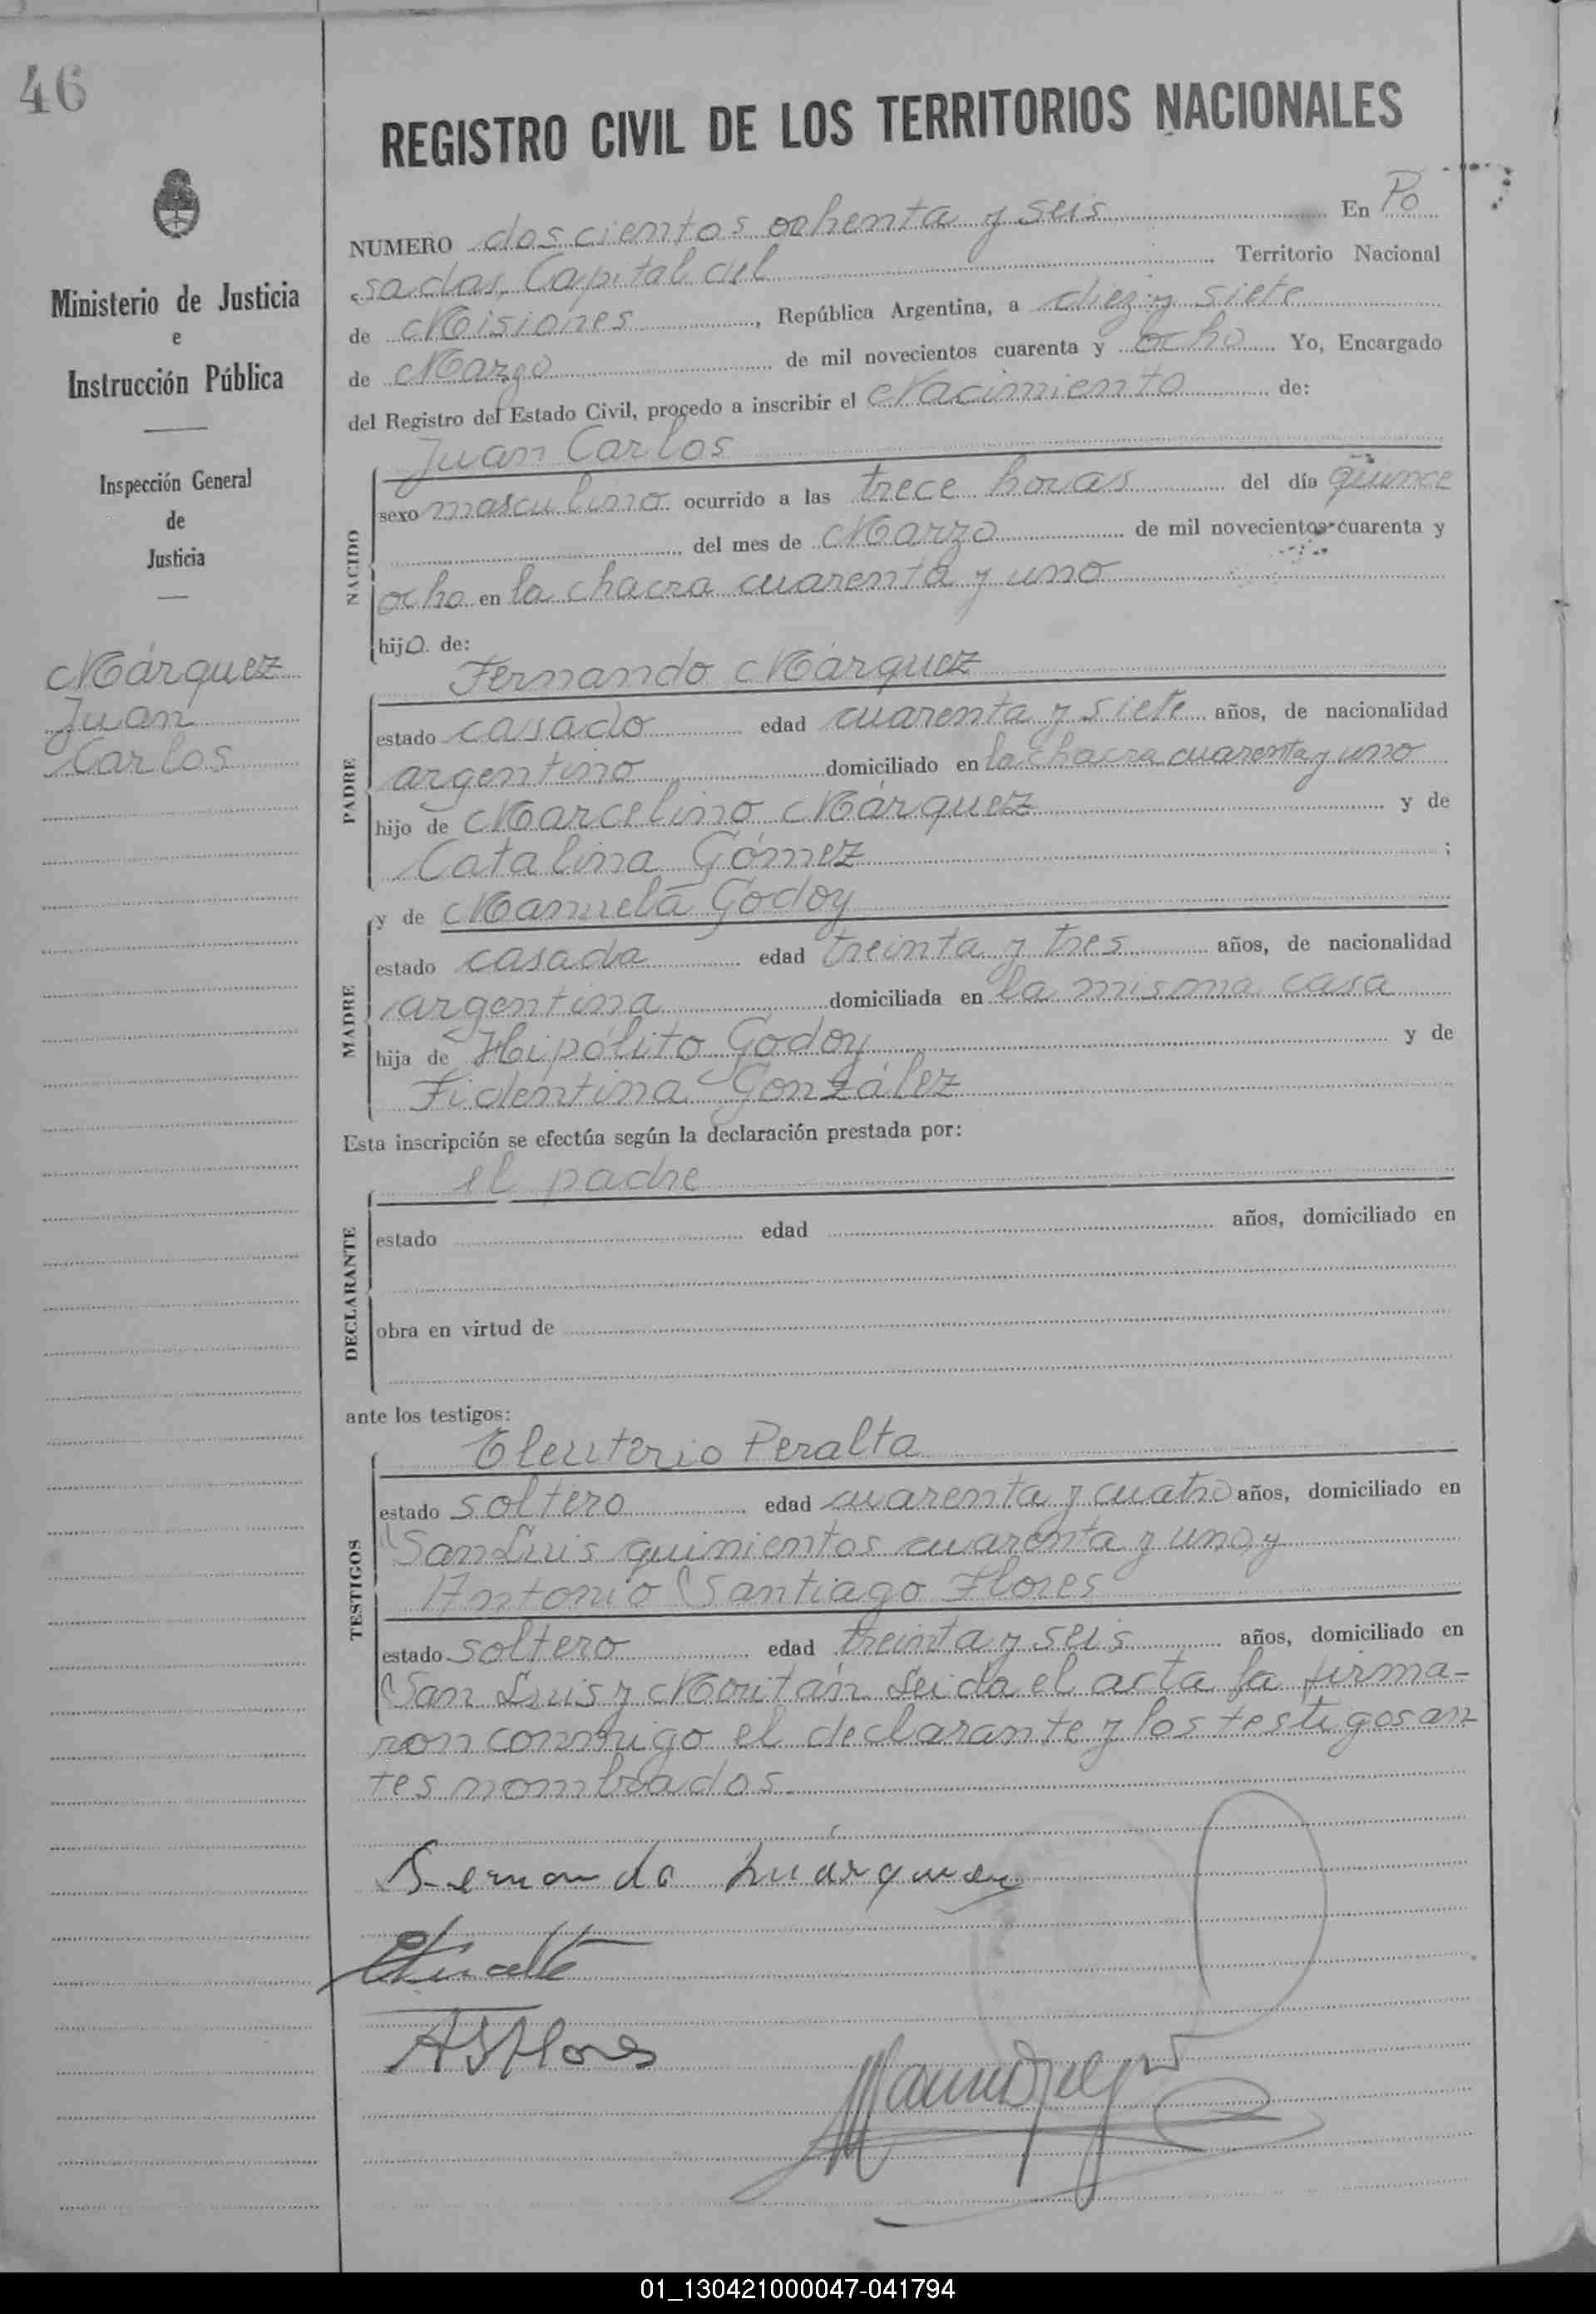 46
Ministerio de Justicia
e
Instrucción Pública
Inspección General
de
Justicia
Márquez
Juan
Carlos
REGISTRO CIVIL DE LOS TERRITORIOS NACIONALES
NUMERO doscientos ochenta y seis En Po
sadas, Capital del Territorio Nacional
de Misiones, República Argentina, a diez y siete
de Marzo de mil novecientos cuarenta y ocho Yo, Encargado
del Registro del Estado Civil, procedo a inscribir el Nacimiento de:
Juan Carlos
NACIDO
sexo masculino ocurrido a las trece horas del día quince
del mes de Marzo de mil novecientos cuarenta y
ocho en la chacra cuarenta y uno
hijo de:
Fernando Márquez
PADRE
estado casado edad cuarenta y siete años, de nacionalidad
argentino domiciliado en la chacra cuarenta y uno
hijo de Marcelino Márquez y de
Catalina Gómez ;
MADRE
y de Manuela Godoy
estado casada edad treinta y tres años, de nacionalidad
argentina domiciliada en la misma casa
hija de Hipólito Godoy y de
Fidentina González
Esta inscripción se efectúa según la declaración prestada por:
el padre
DECLARANTE
estado edad años, domiciliado en
obra en virtud de
ante los testigos:
Eleuterio Peralta
TESTIGOS
estado soltero edad cuarenta y cuatro años, domiciliado en
San Luis quinientos cuarenta y uno y
Antonio Santiago Flores
estado soltero edad treinta y seis años, domiciliado en
San Luis y Moritán Leida el acta la firma-
ron conmigo el declarante y los testigos an
tes nombrados.
Fernando Márquez
ASFlores
01_130421000047-041794